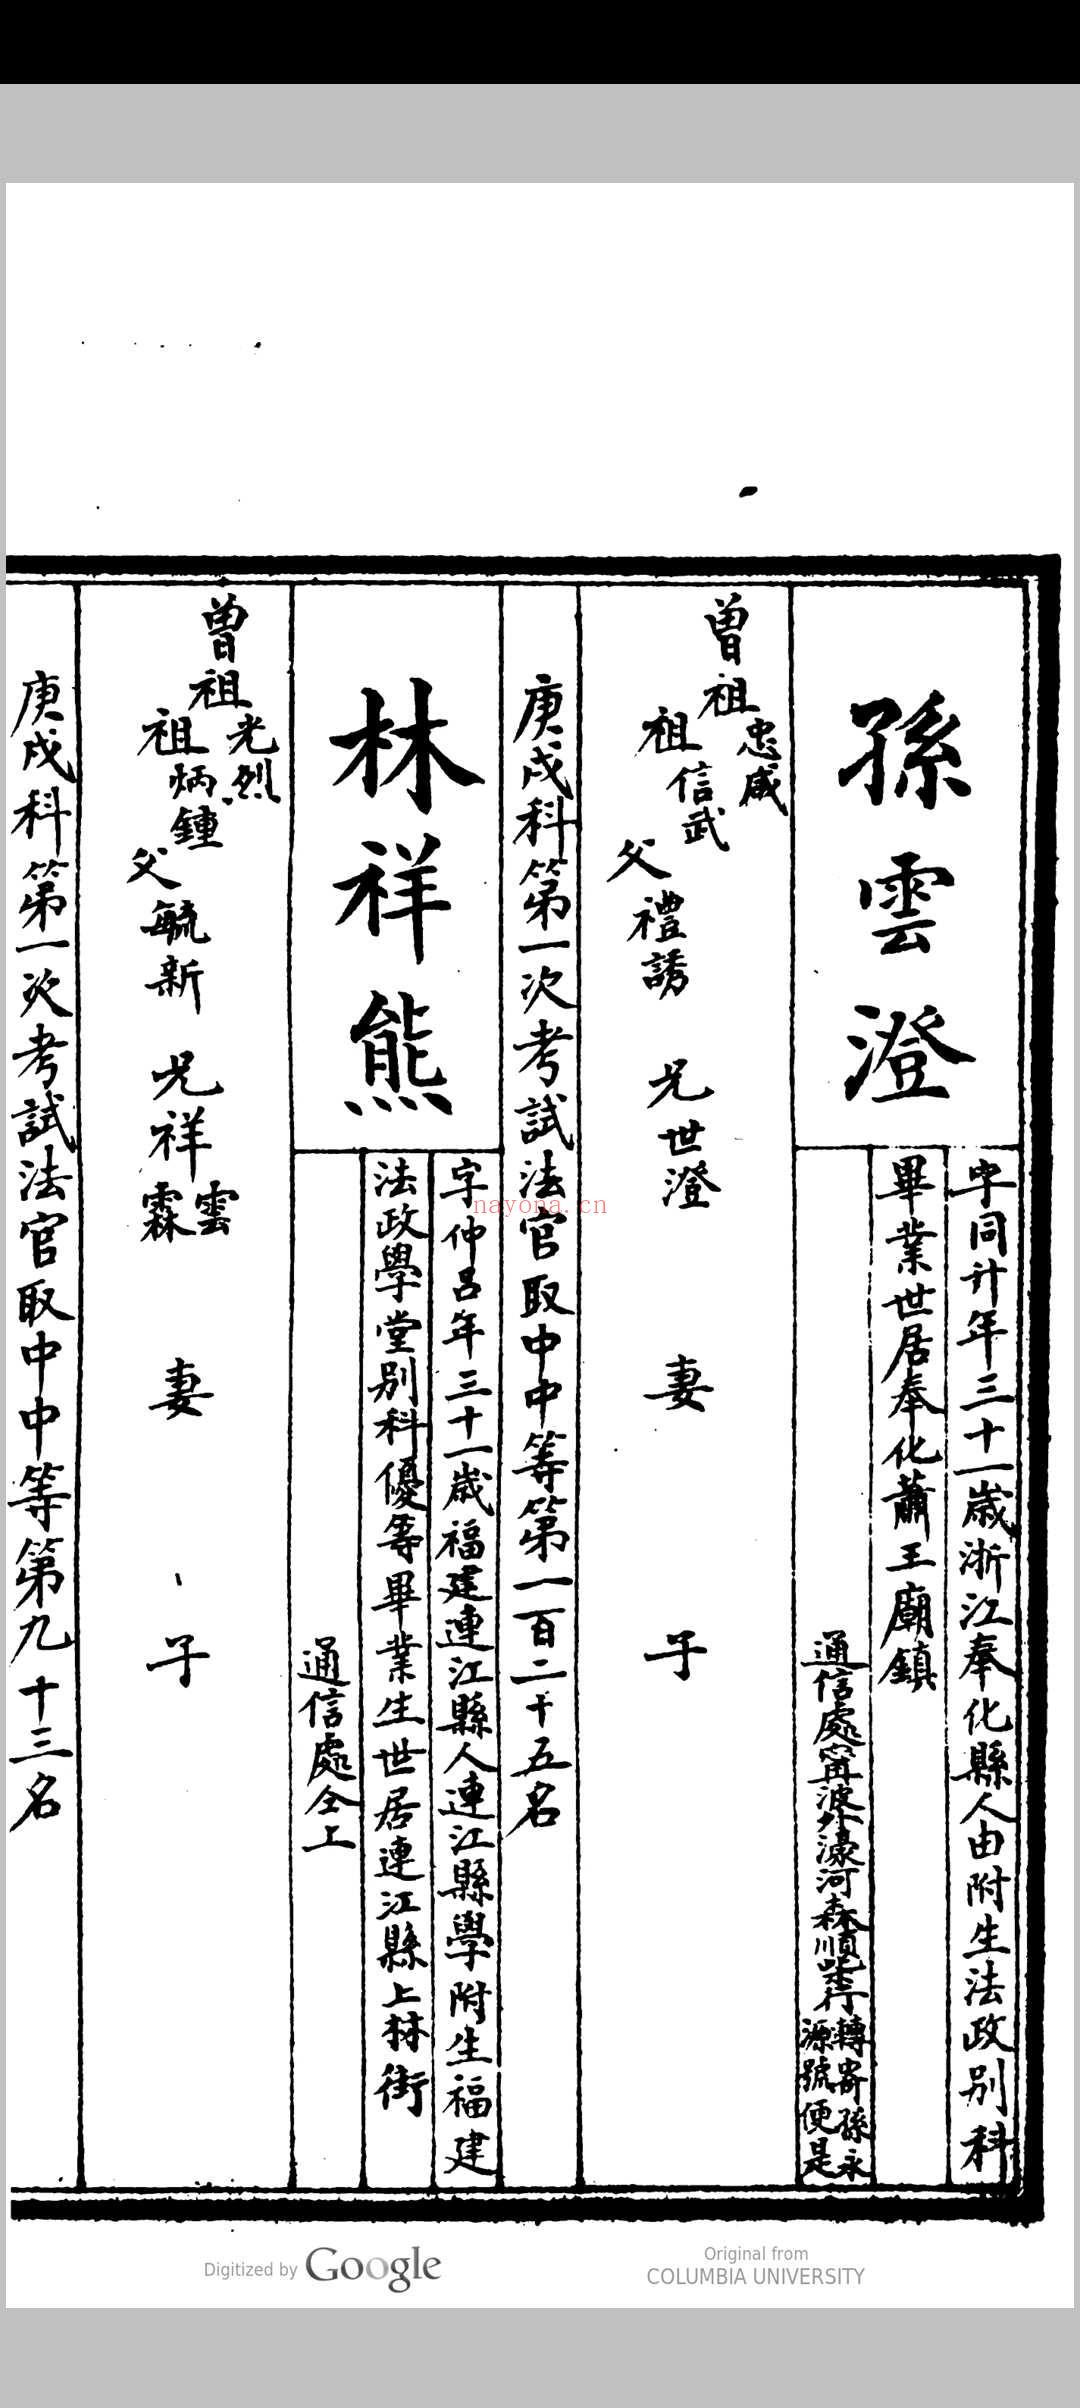 孫雲澄
字同升年三十一歲浙江奉化縣人由附生法政別科
畢業世居奉化蕭王廟鎮
通信處甯波外濠河森順柴行轉寄孫永源號便是
曾祖忠咸
祖信武
父禮誘
兄世澄
妻
子
庚戌科第一次考試法官取中中等第一百二十五名
林祥熊
字仲呂年三十一歲福建連江縣人連江縣學附生福建
法政學堂別科優等畢業生世居連江縣上林街
通信處仝上
曾祖光烈
祖炳鍾
父毓新
兄祥雲霖
妻
子
庚戌科第一次考試法官取中中等第九十三名
nayona.cn
Digitized by Google
Original from
COLUMBIA UNIVERSITY